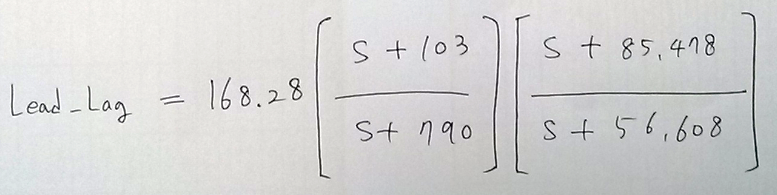 Lead_Lag = 168.28 [ (S + 103) / (S + 790) ] [ (S + 85,478) / (S + 56,608) ]